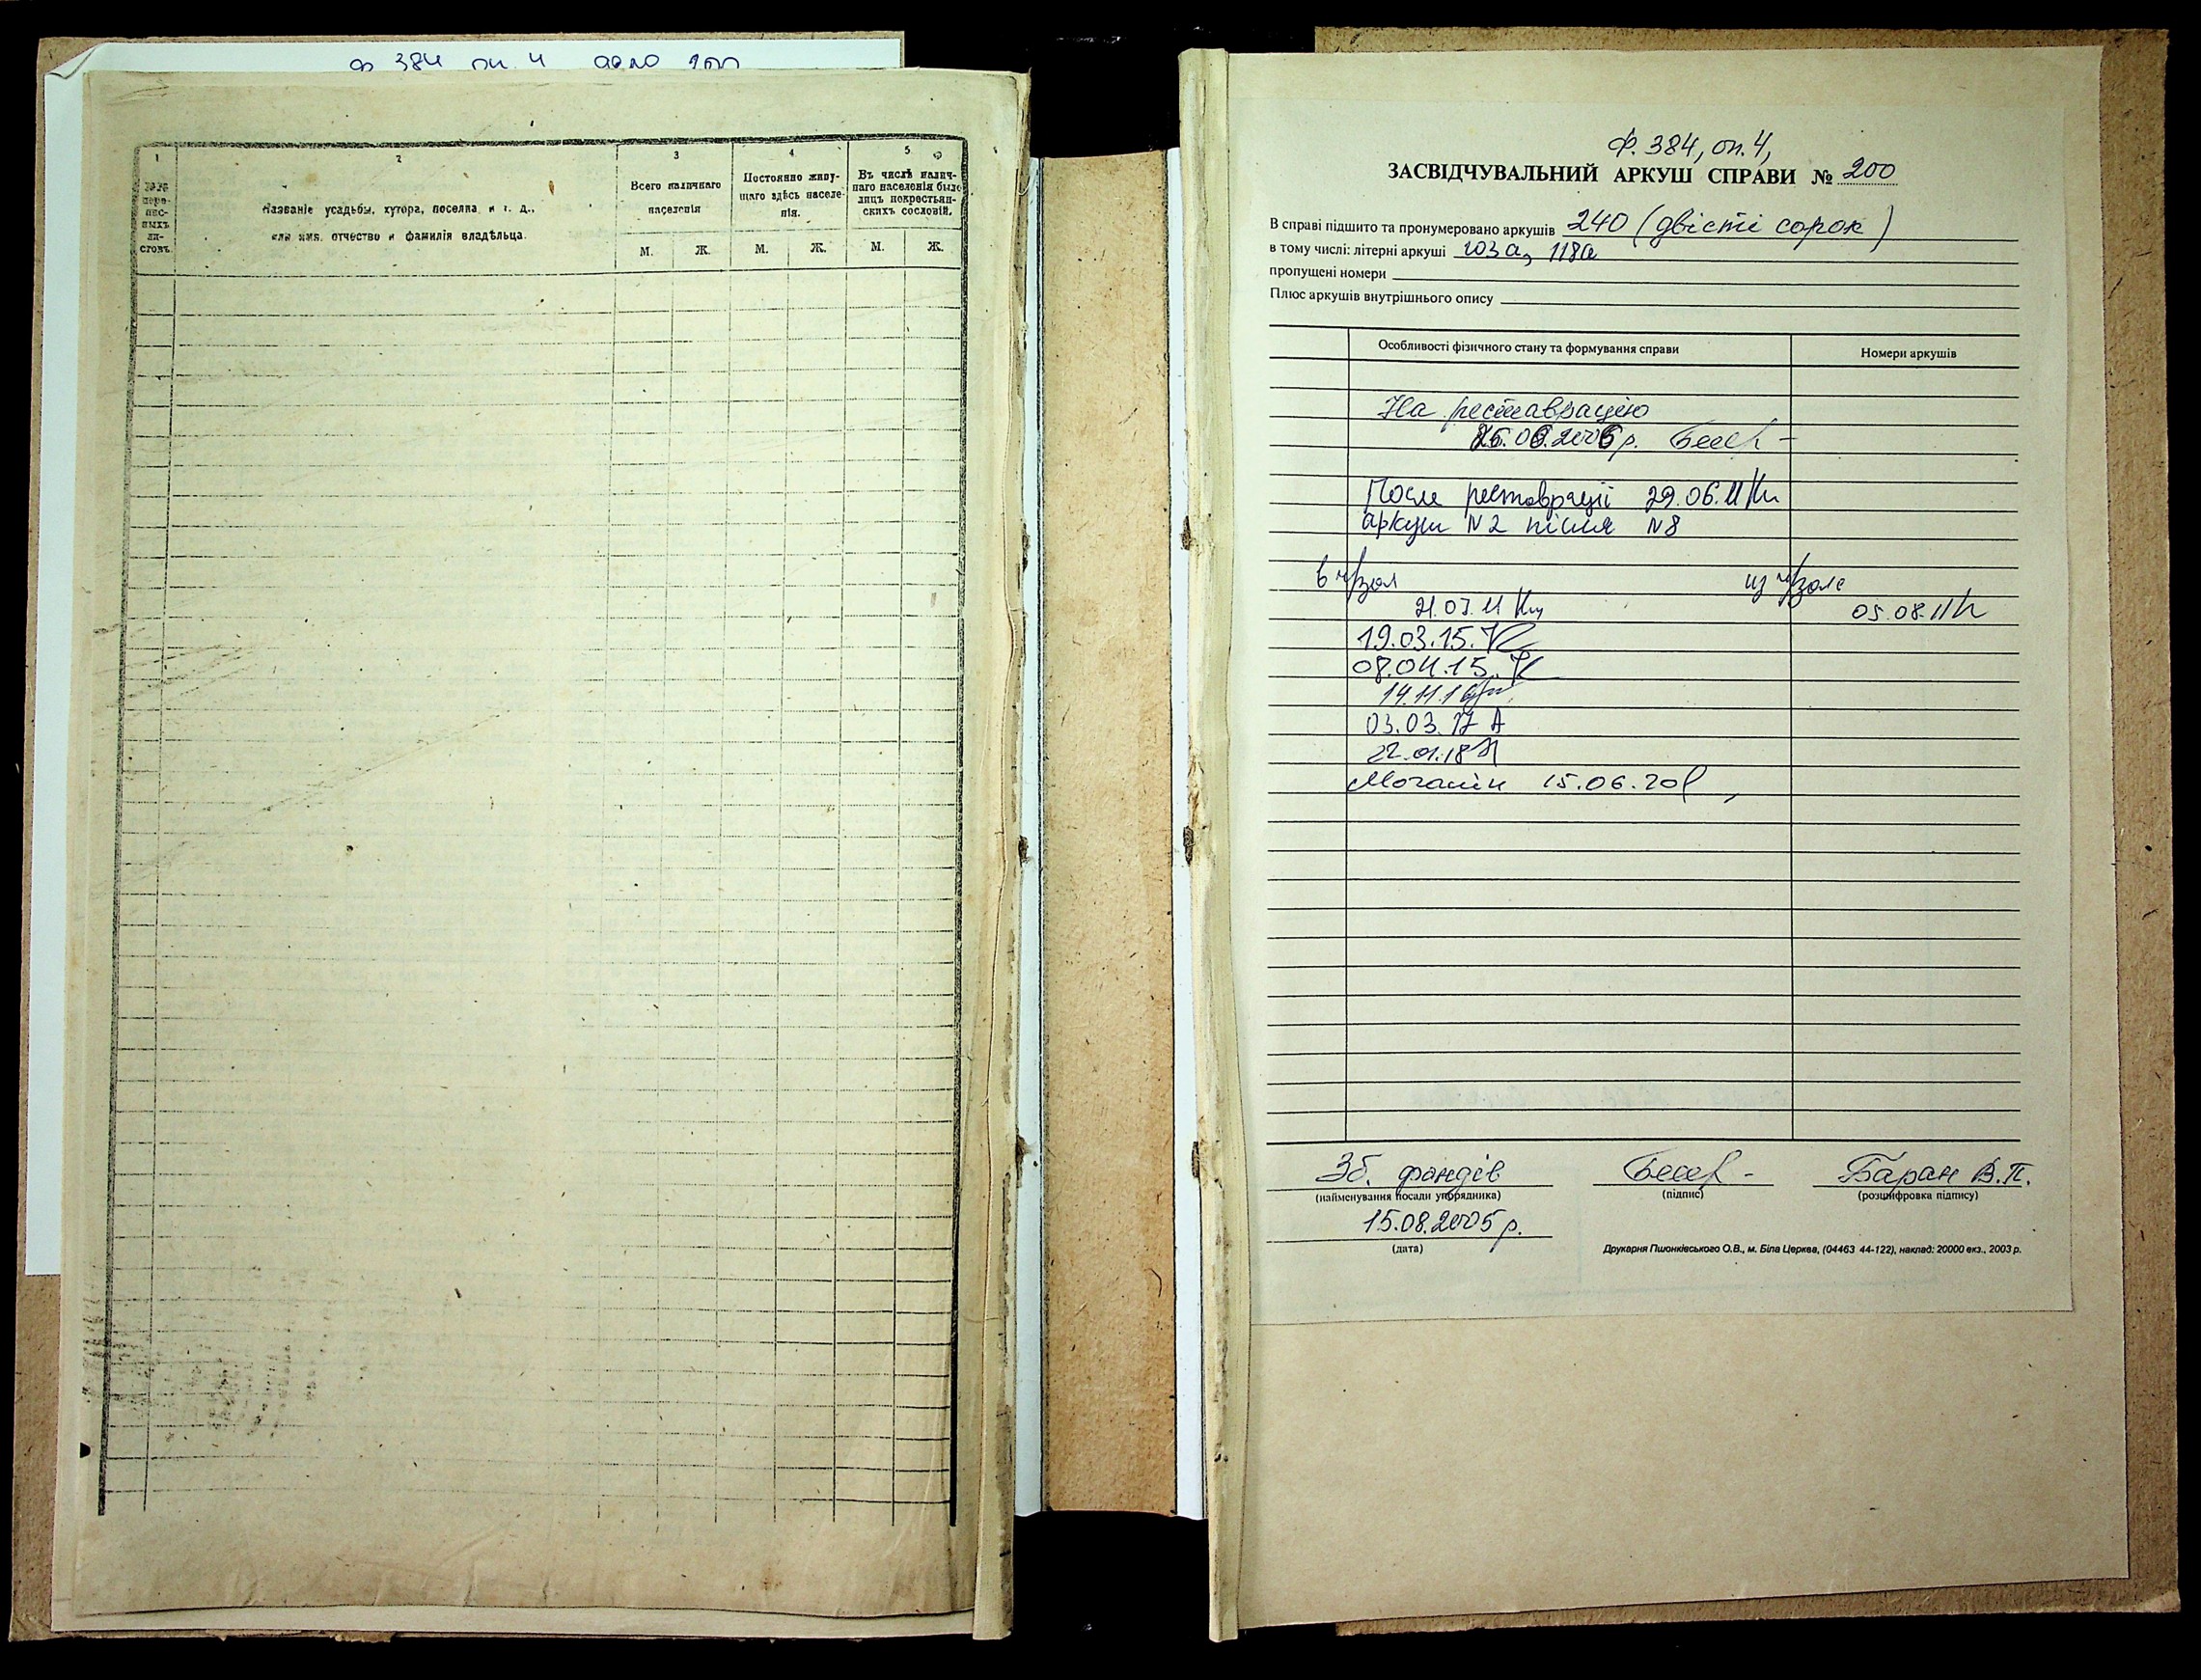 ф 384 оп. 4 дело 200
1
2
3
4
5
№№ пере-
пис-
ныхъ
ли-
стовъ.
Названіе усадьбы, хутора, поселка и т. д.,
или имя, отчество и фамилія владѣльца.
Всего наличнаго
населенія
Постоянно живу-
щаго здѣсь населе-
нія.
Въ числѣ налич-
наго населенія было
лицъ некрестьян-
скихъ сословій.
М. Ж. М. Ж. М. Ж.
Ф. 384, оп. 4,
ЗАСВІДЧУВАЛЬНИЙ АРКУШ СПРАВИ № 200
В справі підшито та пронумеровано аркушів 240 (двісті сорок)
в тому числі: літерні аркуші 103а, 118а
пропущені номери
Плюс аркушів внутрішнього опису
Особливості фізичного стану та формування справи
Номери аркушів
На реставрацію
р.
После реставрації 29.06.11
аркуш N2 після N8
в ч/зал из ч/зала
21.07.11 05.08.11
19.03.15.
08.04.15.
14.11.16
03.03.17 А
22.01.18
15.06.20
Зб. фондів Баран В.П.
(найменування посади упорядника) (підпис) (розшифровка підпису)
15.08.2005 р.
(дата)
Друкарня Пшонківського О.В., м. Біла Церква, (04463 44-122), наклад: 20000 екз., 2003 р.